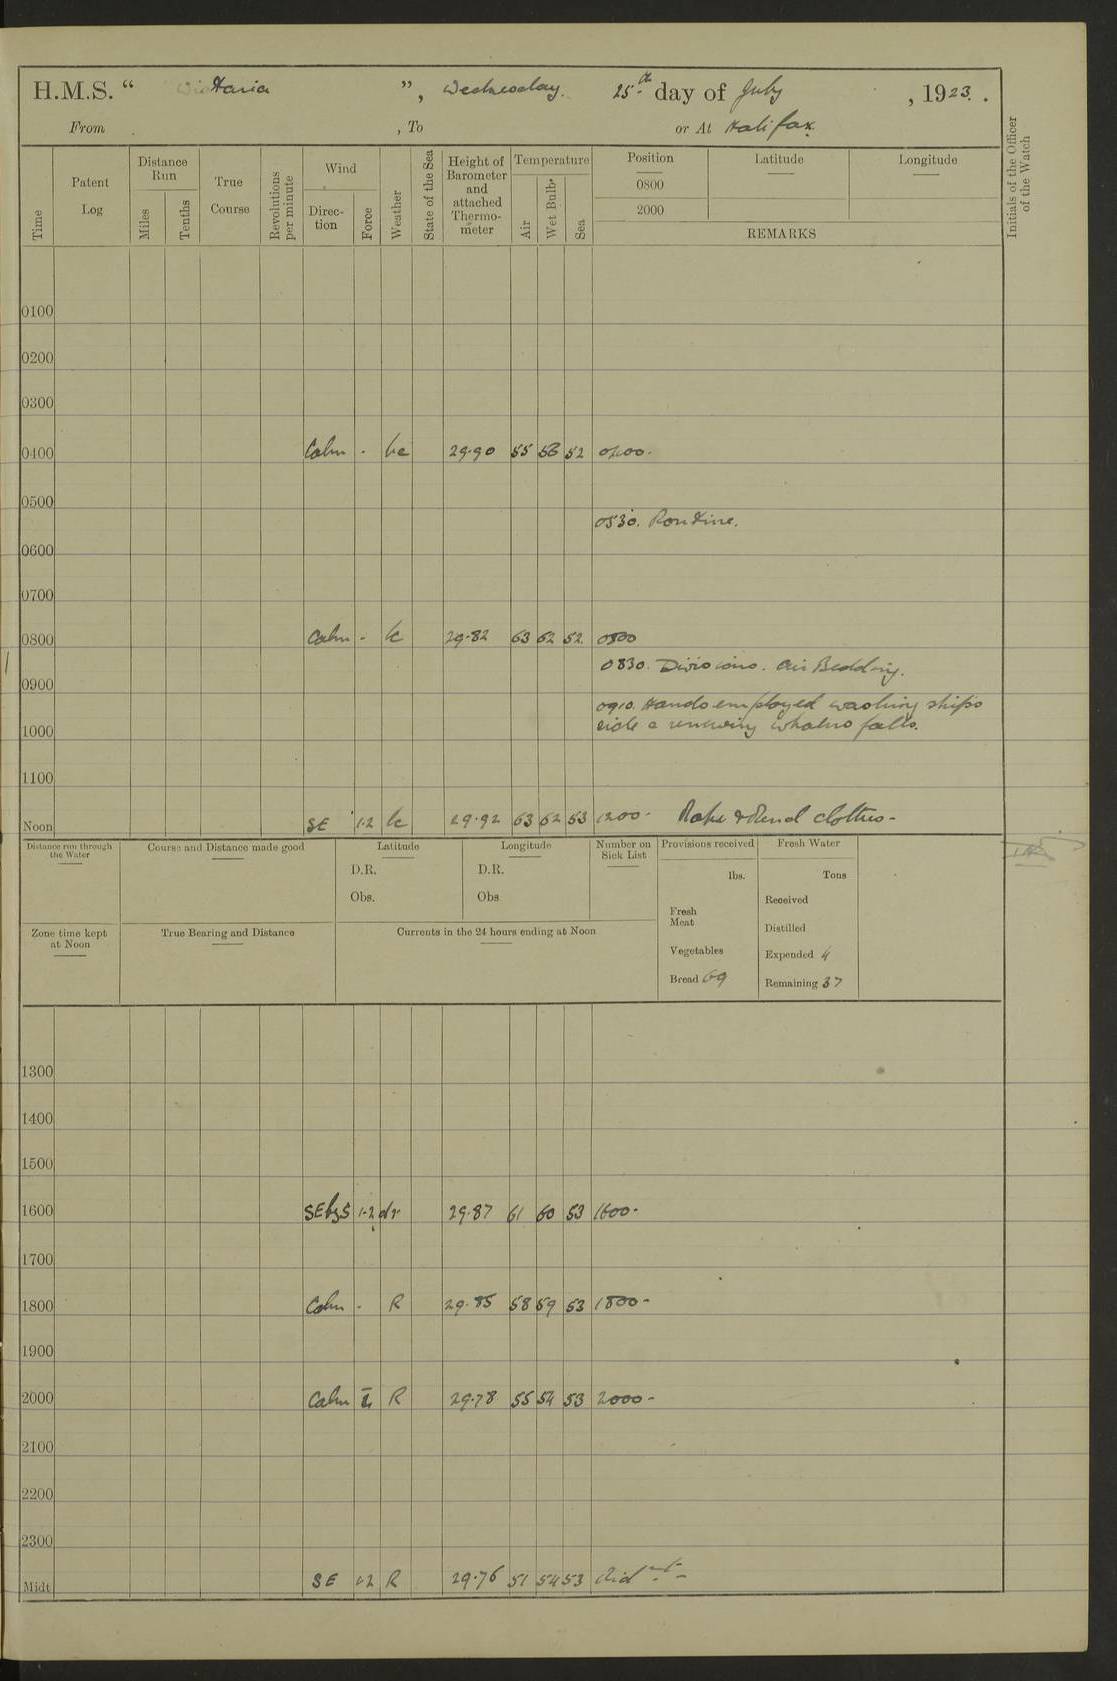 H.M.S. “ Wistaria ”, Wednesday. 25th day of July , 1923.
From , To or At Halifax.
Time
Patent Log
Distance Run
Miles
Tenths
True Course
Revolutions per minute
Wind
Direction
Force
Weather
State of the Sea
Height of Barometer and attached Thermometer
Temperature
Air
Wet Bulb
Sea
Position
0800
2000
Latitude
Longitude
REMARKS
Initials of the Officer of the Watch
0100
0200
0300
0400 Calm - bc 29.90 55 53 52 0400.
0500
0530. Routine.
0600
0700
0800 Calm - bc 29.82 63 62 52 0800
0830. Divisions. Air Bedding.
0900
0910. Hands employed washing ships
side & renewing whalers falls.
1000
1100
Noon SE 1-2 bc 29.92 63 62 53 1200- Make & Mend clothes-
Distance run through the Water
Course and Distance made good
Latitude
D.R.
Obs.
Longitude
D.R.
Obs
Number on Sick List
Provisions received
lbs.
Fresh Meat
Vegetables
Bread 69
Fresh Water
Tons
Received
Distilled
Expended 4
Remaining 37
Zone time kept at Noon
True Bearing and Distance
Currents in the 24 hours ending at Noon
1300
1400
1500
1600 SEbyS 1-2 dr 29.87 61 60 53 1600-
1700
1800 Calm - R 29.85 58 59 53 1800-
1900
2000 Calm R 29.78 55 54 53 2000-
2100
2200
2300
Midt SE 1-2 R 29.76 51 54 53 Midnt-